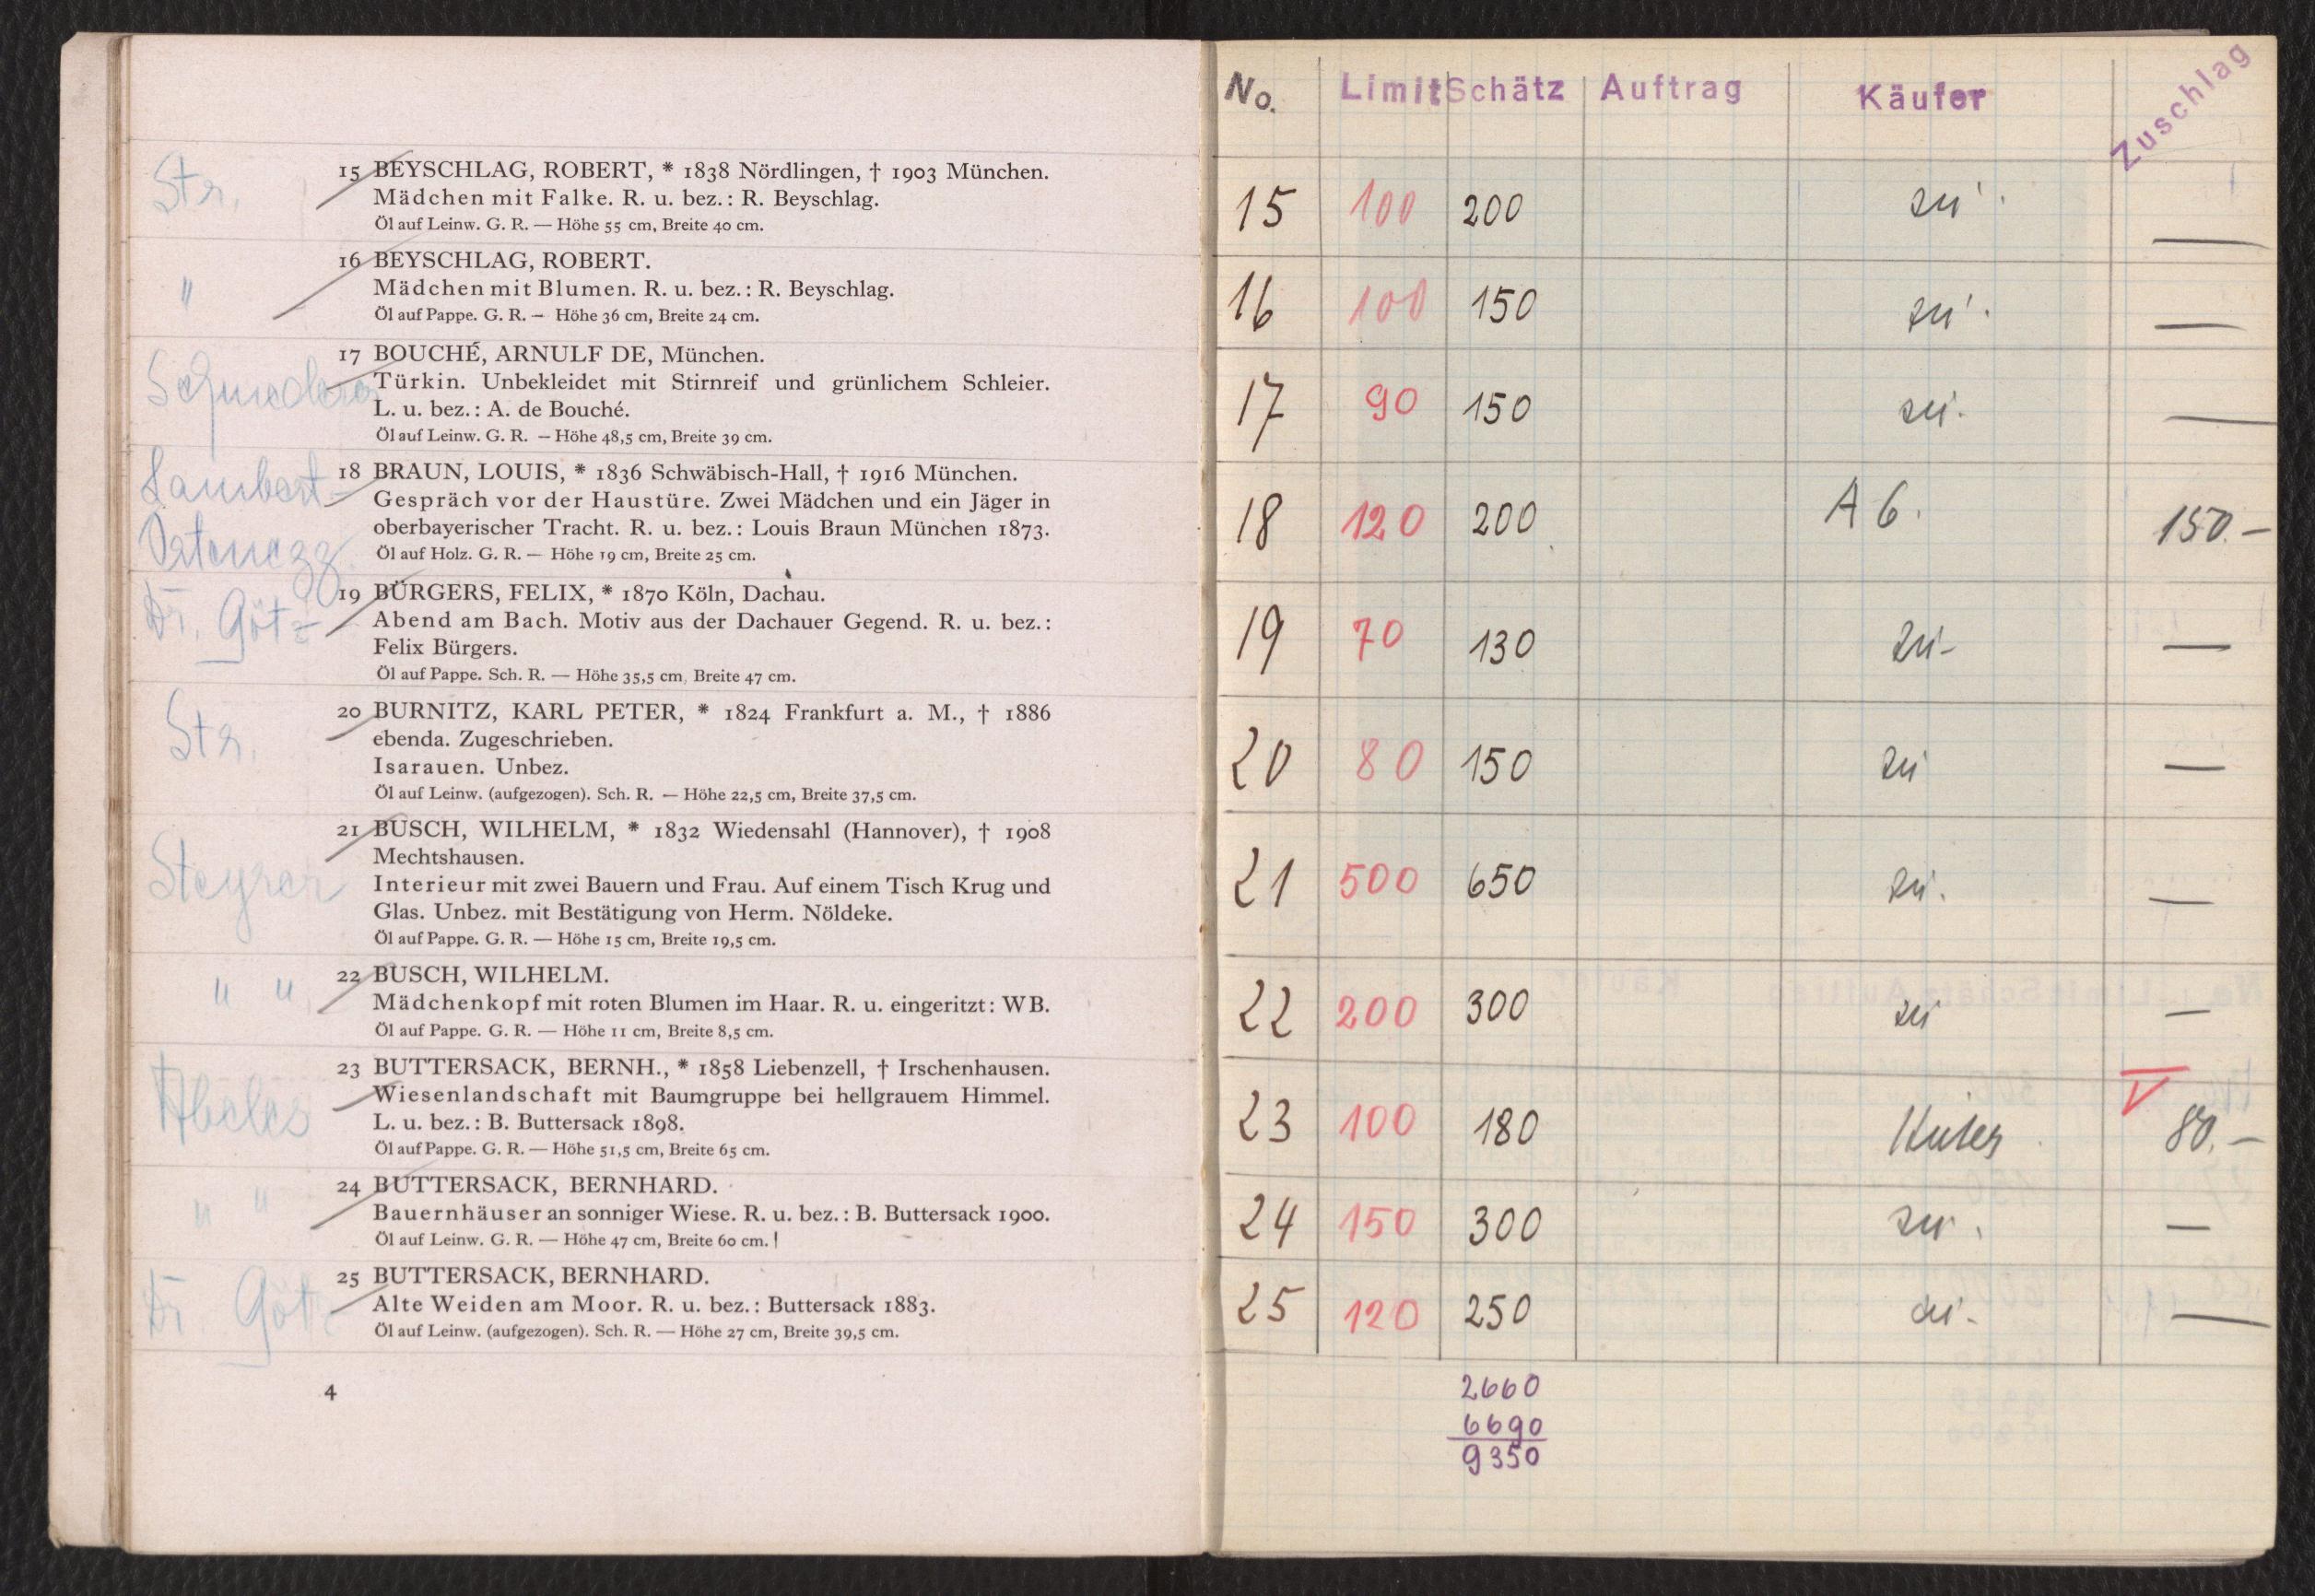 Str.
15 BEYSCHLAG, ROBERT, * 1838 Nördlingen, † 1903 München.
Mädchen mit Falke. R. u. bez.: R. Beyschlag.
Öl auf Leinw. G. R. — Höhe 55 cm, Breite 40 cm.
"
16 BEYSCHLAG, ROBERT.
Mädchen mit Blumen. R. u. bez.: R. Beyschlag.
Öl auf Pappe. G. R. — Höhe 36 cm, Breite 24 cm.
17 BOUCHÉ, ARNULF DE, München.
Türkin. Unbekleidet mit Stirnreif und grünlichem Schleier.
L. u. bez.: A. de Bouché.
Öl auf Leinw. G. R. — Höhe 48,5 cm, Breite 39 cm.
Lambert-
18 BRAUN, LOUIS, * 1836 Schwäbisch-Hall, † 1916 München.
Gespräch vor der Haustüre. Zwei Mädchen und ein Jäger in
oberbayerischer Tracht. R. u. bez.: Louis Braun München 1873.
Öl auf Holz. G. R. — Höhe 19 cm, Breite 25 cm.
Dr. Götz
19 BÜRGERS, FELIX, * 1870 Köln, Dachau.
Abend am Bach. Motiv aus der Dachauer Gegend. R. u. bez.:
Felix Bürgers.
Öl auf Pappe. Sch. R. — Höhe 35,5 cm, Breite 47 cm.
Str.
20 BURNITZ, KARL PETER, * 1824 Frankfurt a. M., † 1886
ebenda. Zugeschrieben.
Isarauen. Unbez.
Öl auf Leinw. (aufgezogen). Sch. R. — Höhe 22,5 cm, Breite 37,5 cm.
Steyrer
21 BUSCH, WILHELM, * 1832 Wiedensahl (Hannover), † 1908
Mechtshausen.
Interieur mit zwei Bauern und Frau. Auf einem Tisch Krug und
Glas. Unbez. mit Bestätigung von Herm. Nöldeke.
Öl auf Pappe. G. R. — Höhe 15 cm, Breite 19,5 cm.
" "
22 BUSCH, WILHELM.
Mädchenkopf mit roten Blumen im Haar. R. u. eingeritzt: WB.
Öl auf Pappe. G. R. — Höhe 11 cm, Breite 8,5 cm.
Abeles
23 BUTTERSACK, BERNH., * 1858 Liebenzell, † Irschenhausen.
Wiesenlandschaft mit Baumgruppe bei hellgrauem Himmel.
L. u. bez.: B. Buttersack 1898.
Öl auf Pappe. G. R. — Höhe 51,5 cm, Breite 65 cm.
" "
24 BUTTERSACK, BERNHARD.
Bauernhäuser an sonniger Wiese. R. u. bez.: B. Buttersack 1900.
Öl auf Leinw. G. R. — Höhe 47 cm, Breite 60 cm.
Dr Götz
25 BUTTERSACK, BERNHARD.
Alte Weiden am Moor. R. u. bez.: Buttersack 1883.
Öl auf Leinw. (aufgezogen). Sch. R. — Höhe 27 cm, Breite 39,5 cm.
4
No. Limit Schätz Auftrag Käufer Zuschlag
15 100 200 zü. —
16 100 150 zü. —
17 90 150 zü. —
18 120 200 A 6. 150.-
19 70 130 zü- —
20 80 150 zü —
21 500 650 zü. —
22 200 300 zü —
23 100 180 V 80.-
24 150 300 zü. —
25 120 250 zü. —
2660
6690
9350